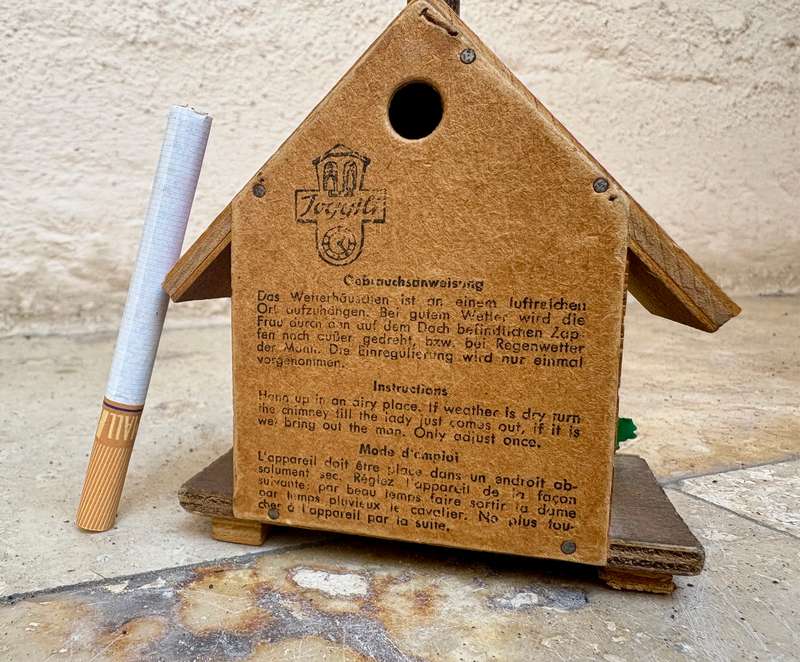 ALL
Joggeli
Gebrauchsanweisung
Das Wetterhäuschen ist an einem luftreichen
Ort aufzuhängen. Bei gutem Wetter wird die
Frau durch den auf dem Dach befindlichen Zap-
fen nach außer gedreht, bzw. bei Regenwetter
der Mann. Die Einregulierung wird nur einmal
vorgenommen.
Instructions
Hang up in an airy place. If weather is dry turn
the chimney till the lady just comes out, if it is
wet bring out the man. Only adjust once.
Mode d'emploi
L'appareil doit être place dans un endroit ab-
solument sec. Réglez l'appareil de la façon
suivante: par beau temps faire sortir la dame
par temps pluvieux le cavalier. No plus tou-
cher à l'appareil par la suite.